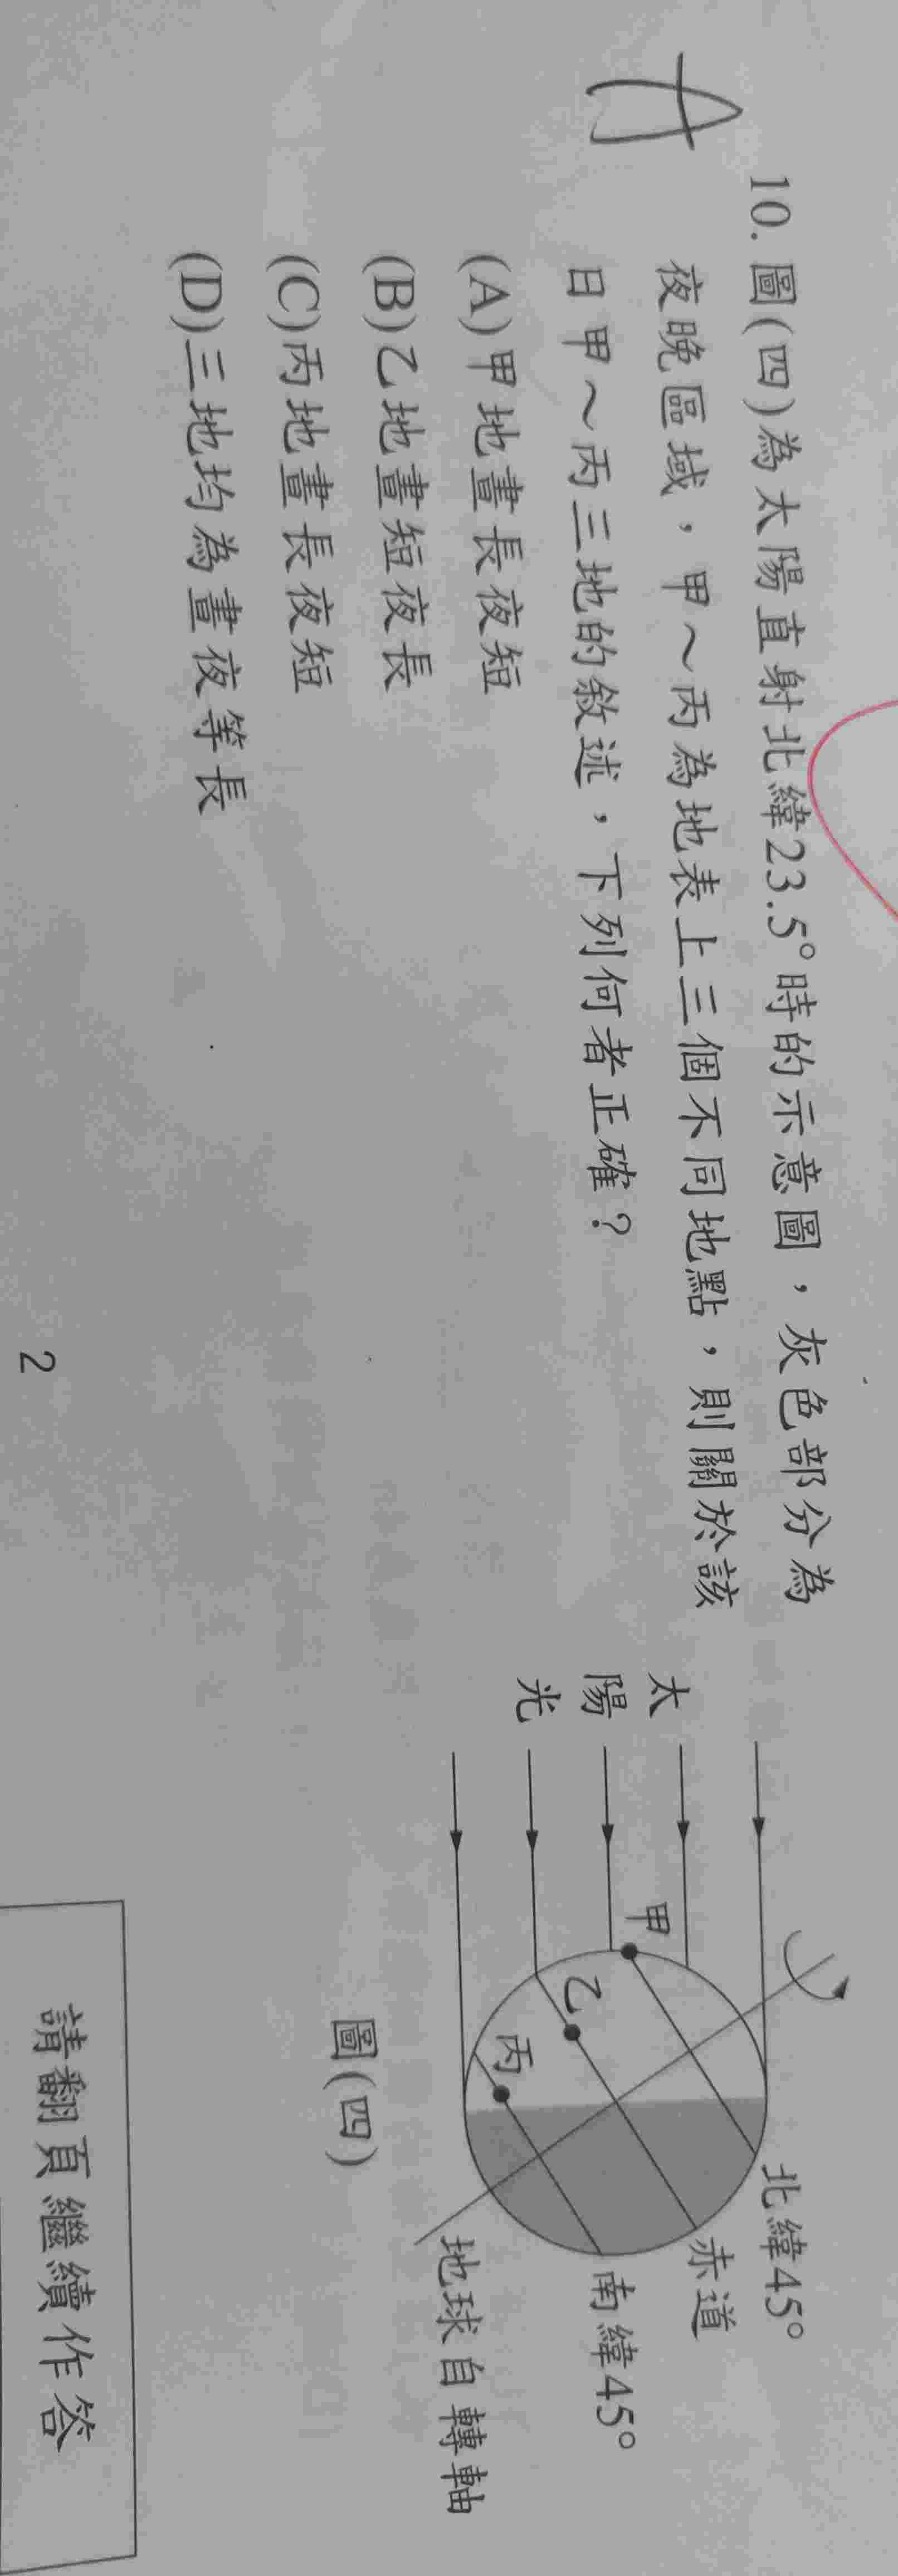 A
10. 圖(四)為太陽直射北緯23.5°時的示意圖，灰色部分為
夜晚區域，甲～丙為地表上三個不同地點，則關於該
日甲～丙三地的敘述，下列何者正確？
(A)甲地晝長夜短
(B)乙地晝短夜長
(C)丙地晝長夜短
(D)三地均為晝夜等長
太陽光
甲
乙
丙
北緯45°
赤道
南緯45°
地球自轉軸
圖(四)
2
請翻頁繼續作答